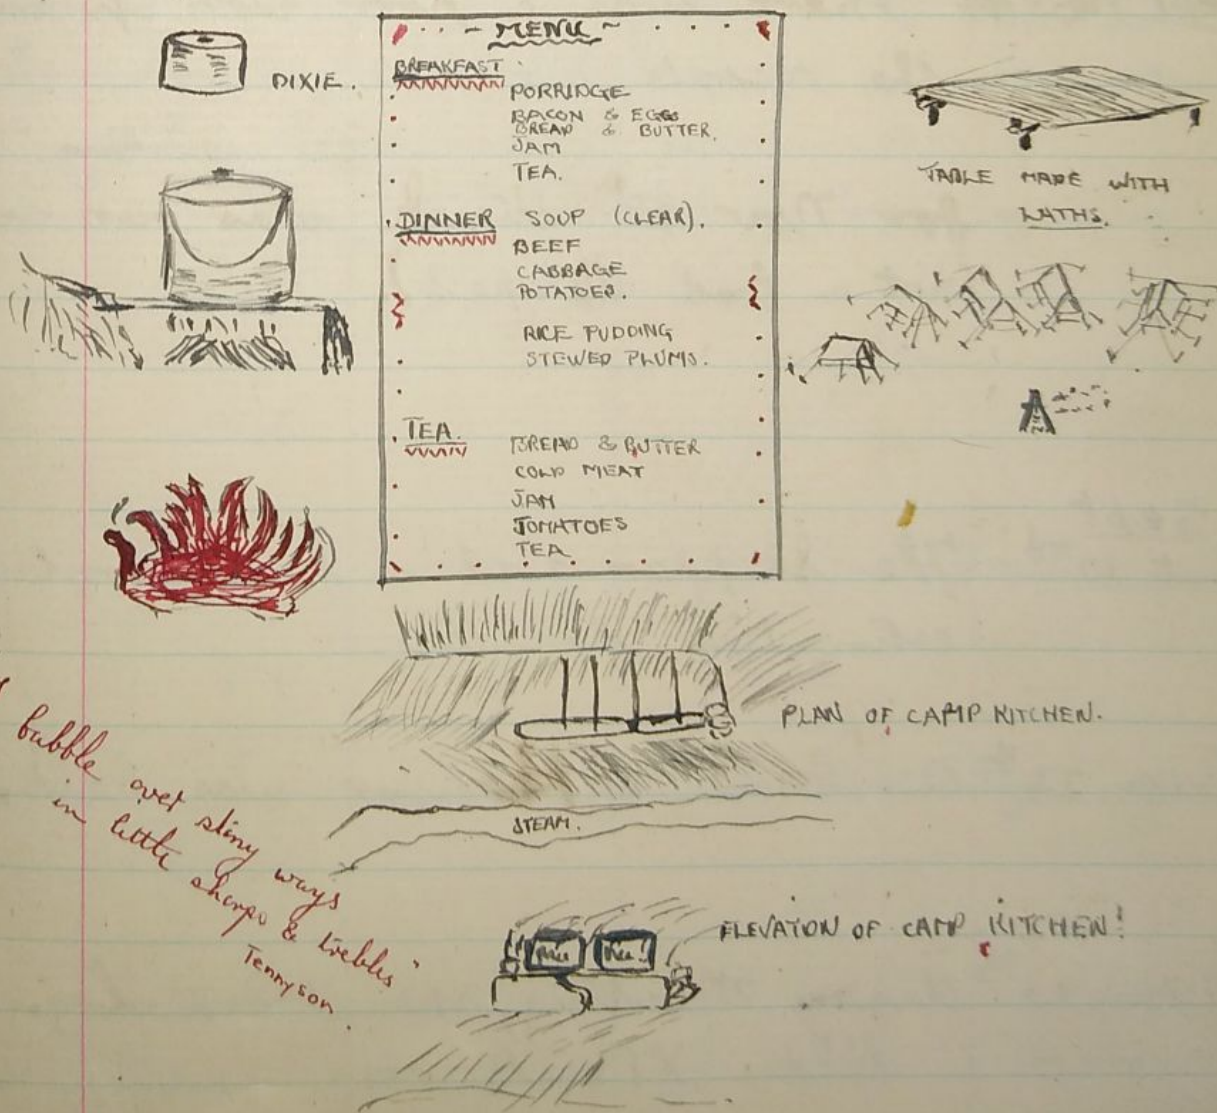 DIXIE.
~ MENU ~
BREAKFAST
PORRIDGE
BACON & EGGS
BREAD & BUTTER.
JAM
TEA.
DINNER SOUP (CLEAR).
BEEF
CABBAGE
POTATOES.
RICE PUDDING
STEWED PLUMS.
TEA.
BREAD & BUTTER
COLD MEAT
JAM
TOMATOES
TEA
TABLE MADE WITH
LATHS.
PLAN OF CAMP KITCHEN.
STEAM.
bubble over stony ways
in little sharps & trebles"
Tennyson.
ELEVATION OF CAMP KITCHEN!